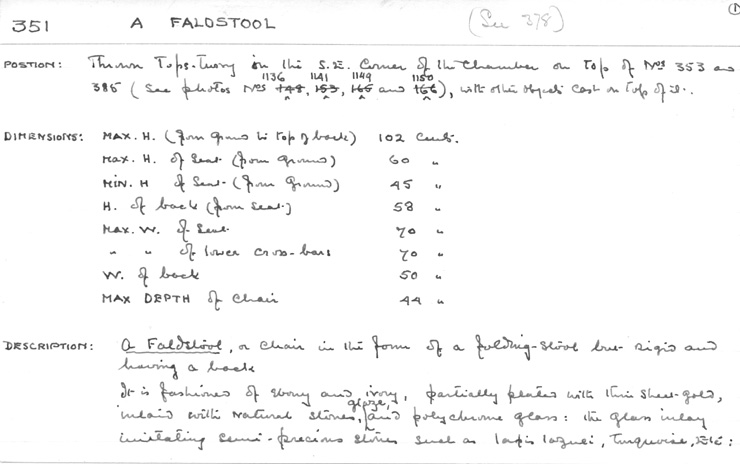 351 A FALDSTOOL (See 378) (1
POSTION: Thrown Topsy-Turvy in the S.E. Corner of the Chamber on top of Nos 353 and
1136 1141 1149 1150
385 (See photos Nos 148, 153, 165 and 166), with other objects cast on top of it.
DIMENSIONS: MAX. H. (from ground to top of back) 102 Cents.
MAX. H. of Seat (from ground) 60 "
MIN. H of Seat (from ground) 45 "
H. of back (from seat) 58 "
MAX. W. of Seat 70 "
" " of lower cross-bars 70 "
W. of back 50 "
MAX DEPTH of Chair 44 "
DESCRIPTION: A Faldstool, or chair in the form of a folding-stool but rigid and
having a back
It is fashioned of ebony and ivory, partially plated with thin sheet-gold,
inlaid with natural stones, glaze, and polychrome glass: the glass inlay
imitating semi-precious stones such as lapis lazuli, Turquoise, Etc: